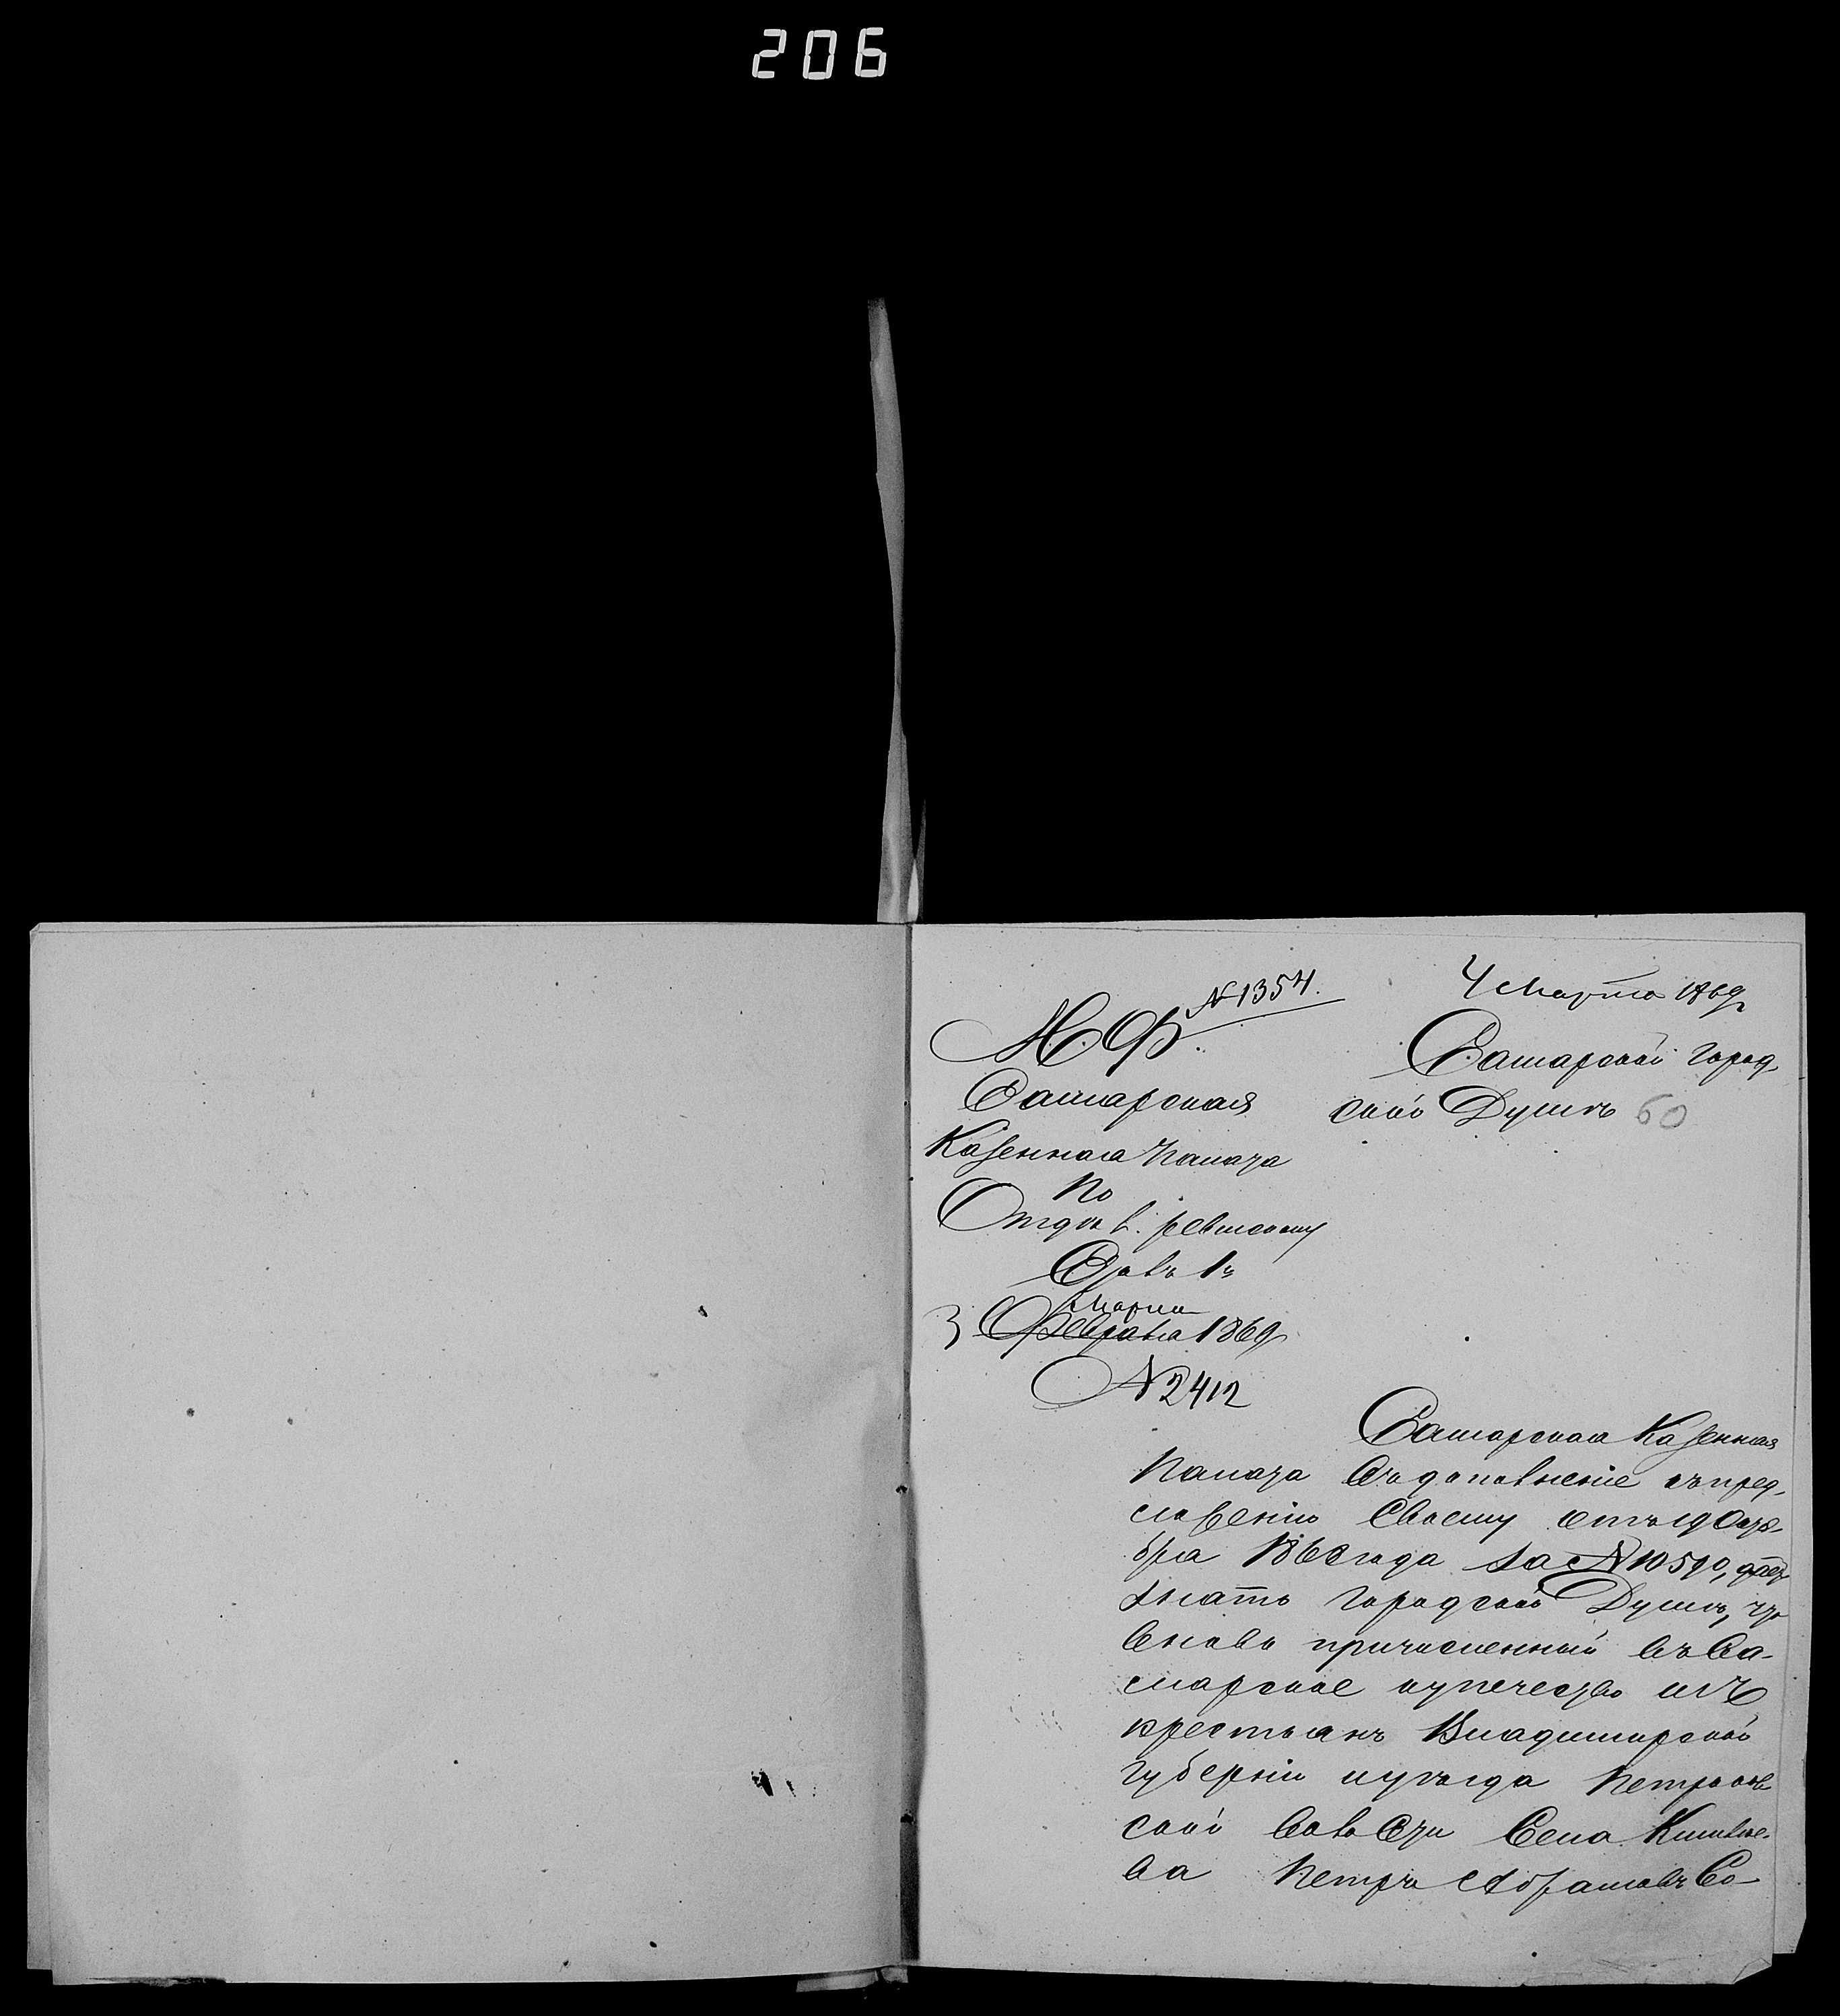 206
№ 1354.
4 Марта 1869
М. Ф.
Самарская
Казенная Палата
По
Отдѣл. ревизскому
Столъ 1й
Марта
3 Февраля 1869
№ 2412
Самарской Город
ской Думѣ 60
Самарская Казенная
Палата въ дополненіе къ пред-
ложенію своему отъ 19 Октя-
бря 1868 года за № 10590,
знать Городской Думѣ, что
вновь причисленный въ Са-
марское купечество изъ
крестьянъ Владимирской
губерніи и уѣзда Петроков
ской волости Села
ва Петръ Абрамовъ Со-